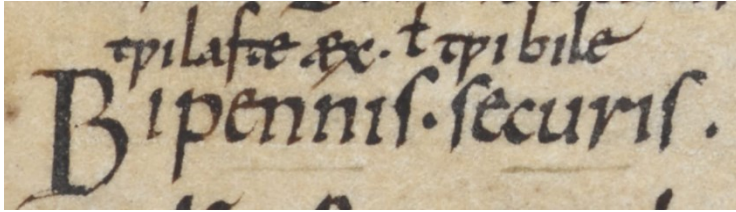 tƿilafte æx. ł tƿibile
Bipennis. securis.